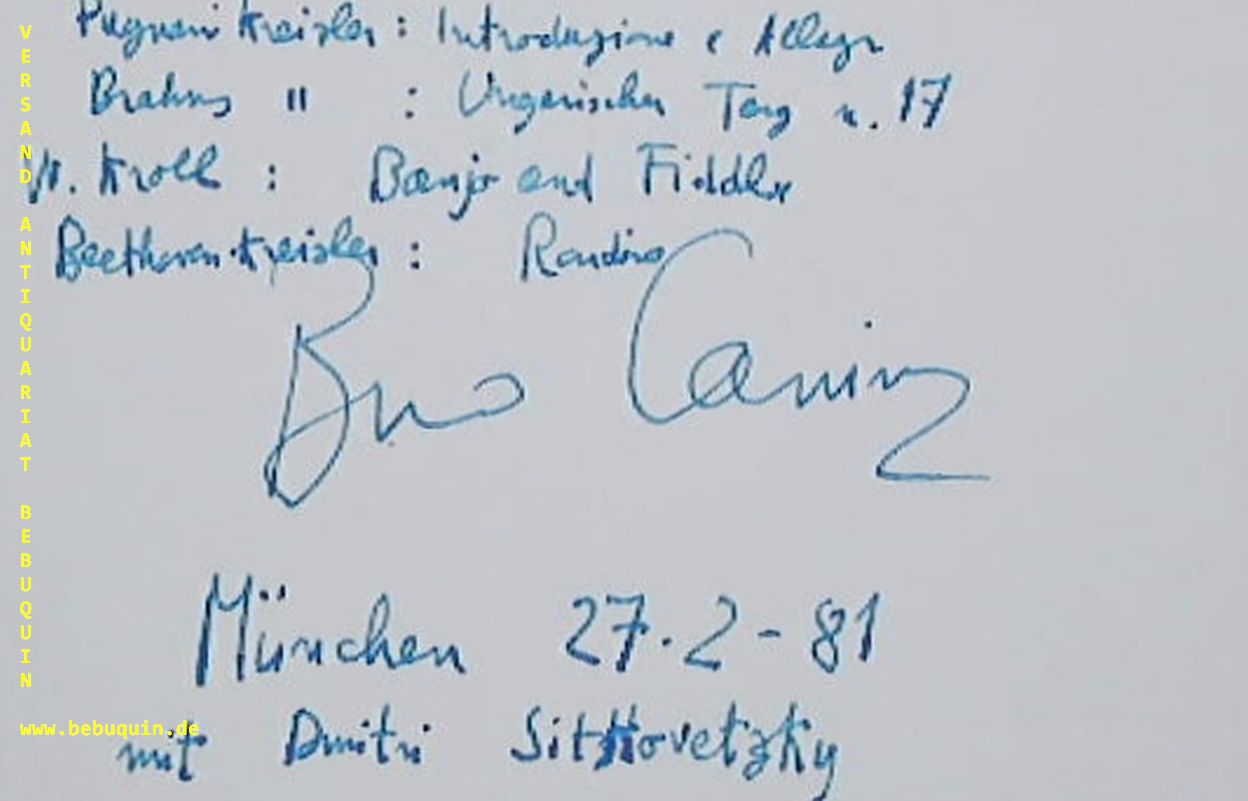 Pugnani Kreisler: Introduzione e Allegr
Brahms " : Ungarischer Tanz n. 17
W. Kroll : Banjo and Fiddle
Beethoven-Kreisler : Rondino
Bruno Canino
München 27.2-81
mit Dmitri Sitkovetzky
VERSAND ANTIQUARIAT BEBUQUIN
www.bebuquin.de